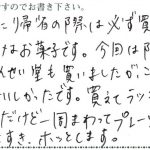 すのでお書き下さい。
こり帰省の際は必ず買
けなお菓子です。今回は
んせい堂も買いましたが、こ
いしかったです。買えてラッ
だけど一周まわってプレー
すき、ホッとします。